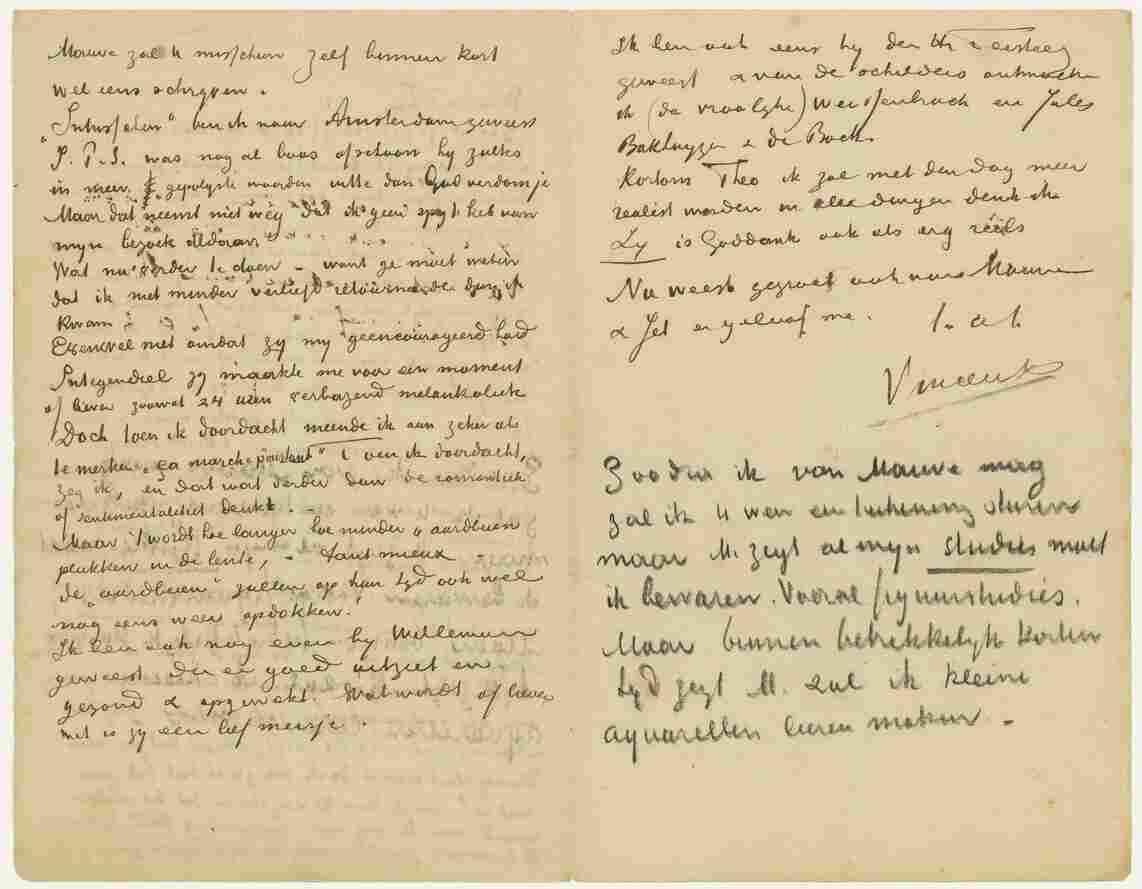 Mauve zal U misschien zelf binnen kort
wel eens schryven.
"Intusschen" ben ik naar Amsterdam geweest
was nog al boos ofschoon hy zulks
in meer gepolyste woorden uitte dan Godverdomje
Maar dat neemt niet weg dat ik geen spyt heb van
myn bezoek aldaar.
Wat nu verder te doen – want ge moet weten
dat ik niet minder verliefd retourneerde dan ik
kwam
Evenwel niet omdat zy my geencourageerd had
Integendeel zy maakte me voor een moment
of liever zoowat 24 uren verbazend melankoliek
Doch toen ik doordacht meende ik aan zeker iets
te merken "ça marche pourtant" toen ik doordacht,
zeg ik, en dat wat verder dan de romantiek
of sentimentaliteit denkt. –
Maar 't wordt hoe langer hoe minder "aardbeien
plukken in de lente," – Tant mieux –
de "aardbeien" zullen op hun tyd ook wel
nog eens weer opdokken.
Ik ben ook nog even by Willemien
geweest die er goed uitziet en
gezond & opgewekt. Wat wordt of liever
wat is zy een lief meisje.
Ik ben ook eens by den Hr Tersteeg
geweest & van de schilders ontmoette
ik (de vroolyke) Weissenbruch en Jules
Bakhuyzen & de Bock.
Kortom Theo ik zal met den dag meer
realist worden in alle dingen denk ik
Zy is Goddank ook als erg reëels
Nu weest gegroet ook van Mauve
& Jet en geloof me. t. à t.
Vincent
Zoodra ik van Mauve mag
zal ik U weer een teekening sturen
maar M. zegt al myn studies moet
ik bewaren. Vooral figuurstudies.
Maar binnen betrekkelyk korten
tyd zegt M. zal ik kleine
aquarellen leeren maken –